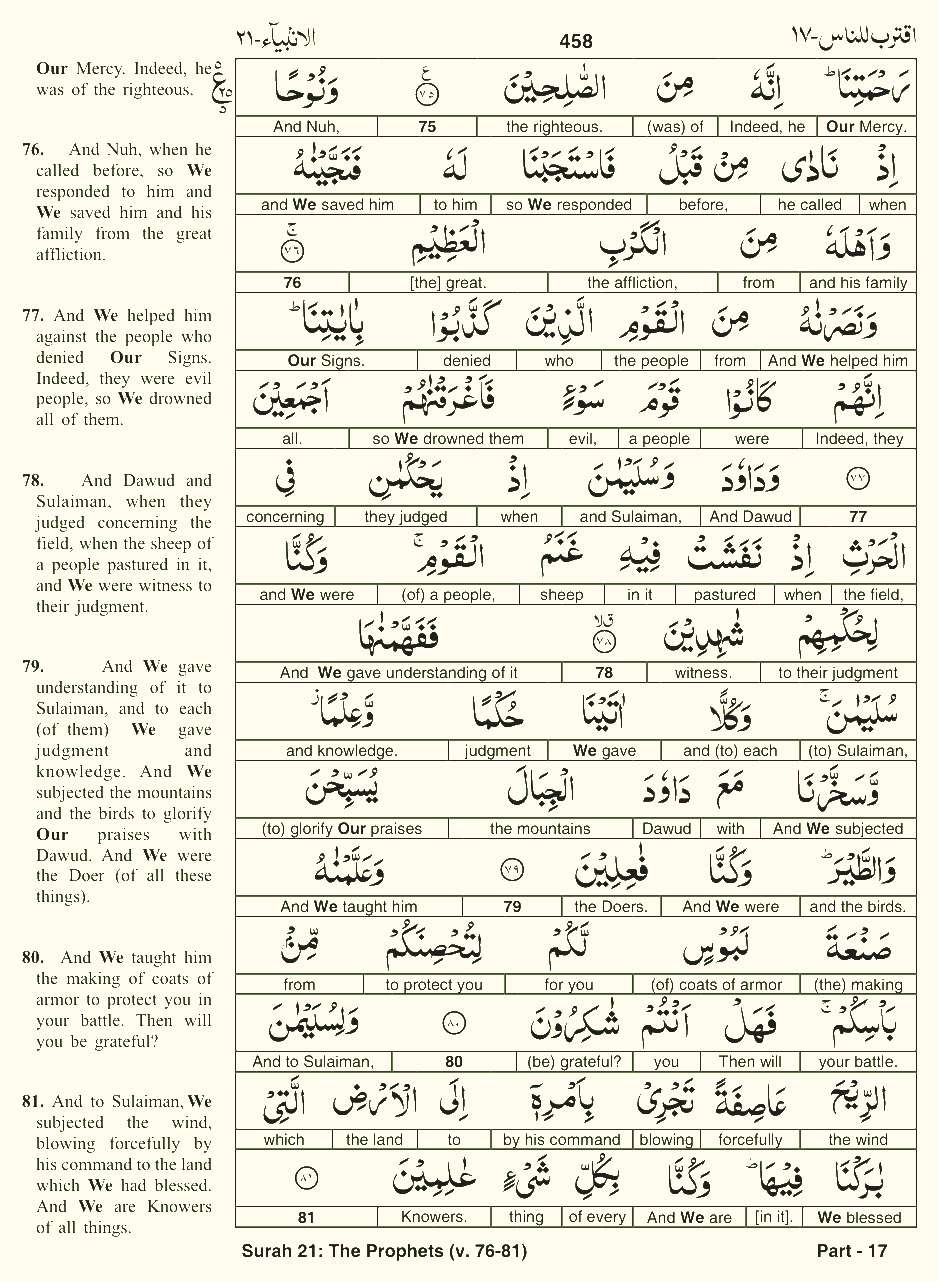 الانبيآء-٢١ 458 اقترب للناس-١٧
Our Mercy. Indeed, he
was of the righteous.
76. And Nuh, when he
called before, so We
responded to him and
We saved him and his
family from the great
affliction.
77. And We helped him
against the people who
denied Our Signs.
Indeed, they were evil
people, so We drowned
all of them.
78. And Dawud and
Sulaiman, when they
judged concerning the
field, when the sheep of
a people pastured in it,
and We were witness to
their judgment.
79. And We gave
understanding of it to
Sulaiman, and to each
(of them) We gave
judgment and
knowledge. And We
subjected the mountains
and the birds to glorify
Our praises with
Dawud. And We were
the Doer (of all these
things).
80. And We taught him
the making of coats of
armor to protect you in
your battle. Then will
you be grateful?
81. And to Sulaiman, We
subjected the wind,
blowing forcefully by
his command to the land
which We had blessed.
And We are Knowers
of all things.
رَحْمَتِنَا ؕ اِنَّهٗ مِنَ الصّٰلِحِيْنَ ﴿٧٥﴾ وَنُوْحًا
And Nuh, 75 the righteous. (was) of Indeed, he Our Mercy.
اِذْ نَادٰى مِنْ قَبْلُ فَاسْتَجَبْنَا لَهٗ فَنَجَّيْنٰهُ
and We saved him to him so We responded before, he called when
وَاَهْلَهٗ مِنَ الْكَرْبِ الْعَظِيْمِ ﴿٧٦﴾ۚ
76 [the] great. the affliction, from and his family
وَنَصَرْنٰهُ مِنَ الْقَوْمِ الَّذِيْنَ كَذَّبُوْا بِاٰيٰتِنَا ؕ
Our Signs. denied who the people from And We helped him
اِنَّهُمْ كَانُوْا قَوْمَ سَوْءٍ فَاَغْرَقْنٰهُمْ اَجْمَعِيْنَ
all. so We drowned them evil, a people were Indeed, they
﴿٧٧﴾ وَدَاوٗدَ وَسُلَيْمٰنَ اِذْ يَحْكُمٰنِ فِى
concerning they judged when and Sulaiman, And Dawud 77
الْحَرْثِ اِذْ نَفَشَتْ فِيْهِ غَنَمُ الْقَوْمِ ۚ وَكُنَّا
and We were (of) a people, sheep in it pastured when the field,
لِحُكْمِهِمْ شٰهِدِيْنَ ﴿٧٨﴾ فَفَهَّمْنٰهَا
And We gave understanding of it 78 witness. to their judgment
سُلَيْمٰنَ ۚ وَكُلًّا اٰتَيْنَا حُكْمًا وَّعِلْمًا
and knowledge. judgment We gave and (to) each (to) Sulaiman,
وَّسَخَّرْنَا مَعَ دَاوٗدَ الْجِبَالَ يُسَبِّحْنَ
(to) glorify Our praises the mountains Dawud with And We subjected
وَالطَّيْرَ ؕ وَكُنَّا فٰعِلِيْنَ ﴿٧٩﴾ وَعَلَّمْنٰهُ
And We taught him 79 the Doers. And We were and the birds.
صَنْعَةَ لَبُوْسٍ لَّكُمْ لِتُحْصِنَكُمْ مِّنْۢ
from to protect you for you (of) coats of armor (the) making
بَاْسِكُمْ ۚ فَهَلْ اَنْتُمْ شٰكِرُوْنَ ﴿٨٠﴾ وَلِسُلَيْمٰنَ
And to Sulaiman, 80 (be) grateful? you Then will your battle.
الرِّيْحَ عَاصِفَةً تَجْرِىْ بِاَمْرِهٖٓ اِلَى الْاَرْضِ الَّتِىْ
which the land to by his command blowing forcefully the wind
بٰرَكْنَا فِيْهَا ؕ وَكُنَّا بِكُلِّ شَىْءٍ عٰلِمِيْنَ ﴿٨١﴾
81 Knowers. thing of every And We are [in it]. We blessed
Surah 21: The Prophets (v. 76-81) Part - 17